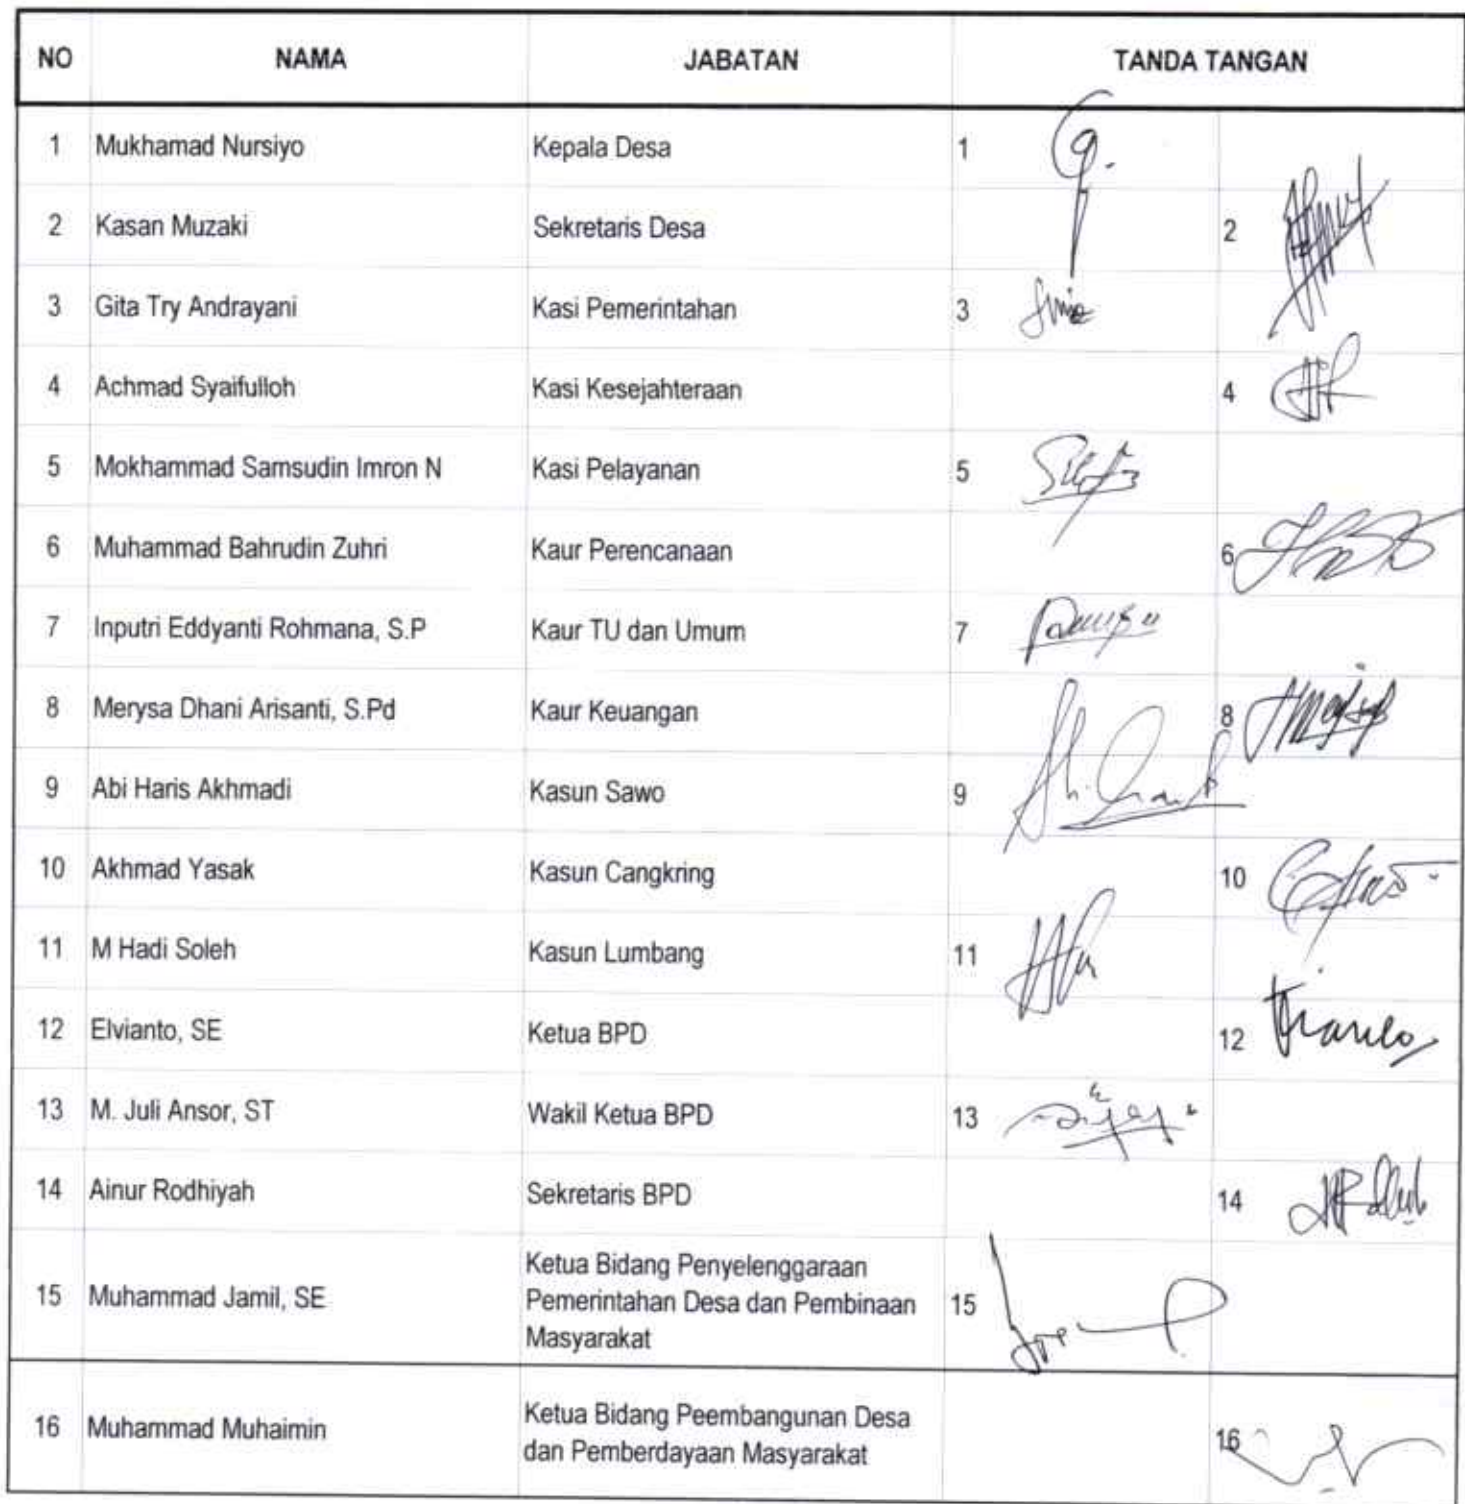 NO NAMA JABATAN TANDA TANGAN
1 Mukhamad Nursiyo Kepala Desa 1
2 Kasan Muzaki Sekretaris Desa 2
3 Gita Try Andrayani Kasi Pemerintahan 3
4 Achmad Syaifulloh Kasi Kesejahteraan 4
5 Mokhammad Samsudin Imron N Kasi Pelayanan 5
6 Muhammad Bahrudin Zuhri Kaur Perencanaan 6
7 Inputri Eddyanti Rohmana, S.P Kaur TU dan Umum 7
8 Merysa Dhani Arisanti, S.Pd Kaur Keuangan 8
9 Abi Haris Akhmadi Kasun Sawo 9
10 Akhmad Yasak Kasun Cangkring 10
11 M Hadi Soleh Kasun Lumbang 11
12 Elvianto, SE Ketua BPD 12
13 M. Juli Ansor, ST Wakil Ketua BPD 13
14 Ainur Rodhiyah Sekretaris BPD 14
15 Muhammad Jamil, SE Ketua Bidang Penyelenggaraan
Pemerintahan Desa dan Pembinaan 15
Masyarakat
16 Muhammad Muhaimin Ketua Bidang Peembangunan Desa
dan Pemberdayaan Masyarakat 16